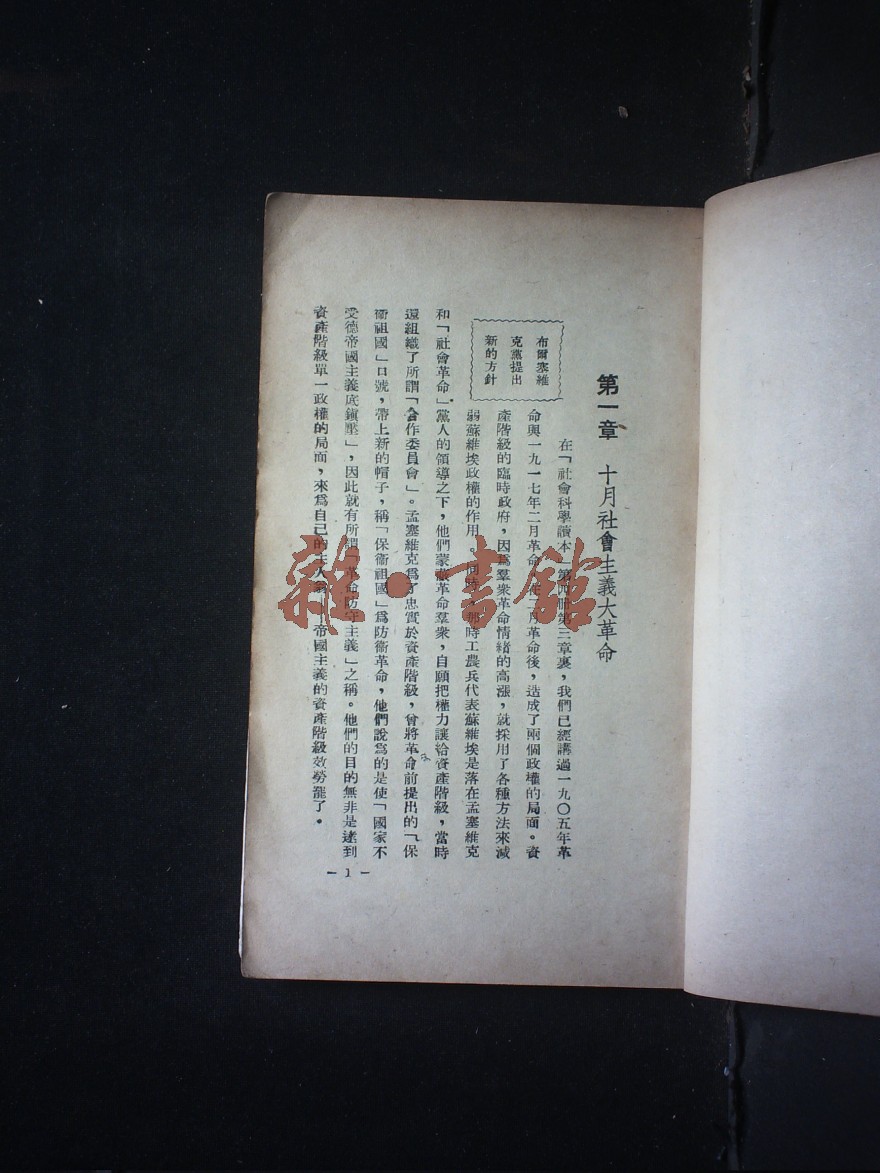 第一章 十月社會主義大革命
布爾塞維
克黨提出
新的方針
在「社會科學讀本」第四册第三章裏，我們已經講過一九〇五年革
命與一九一七年二月革命。在二月革命後，造成了兩個政權的局面。資
產階級的臨時政府，因爲羣衆革命情緒的高漲，就採用了各種方法來減
弱蘇維埃政權的作用。同時，那時工農兵代表蘇維埃是落在孟塞維克
和「社會革命」黨人的領導之下，他們蒙蔽革命羣衆，自願把權力讓給資產階級，當時
還組織了所謂「合作委員會」。孟塞維克爲了忠實於資產階級，曾將革命前提出的「保
衞祖國」口號，帶上新的帽子，稱「保衞祖國」爲防衞革命，他們說爲的是使「國家不
受德帝國主義底鎭壓」，因此就有所謂「革命防守主義」之稱。他們的目的無非是達到
資產階級單一政權的局面，來爲自己的主人翁—帝國主義的資產階級效勞罷了。
— 1 —
雜·書館